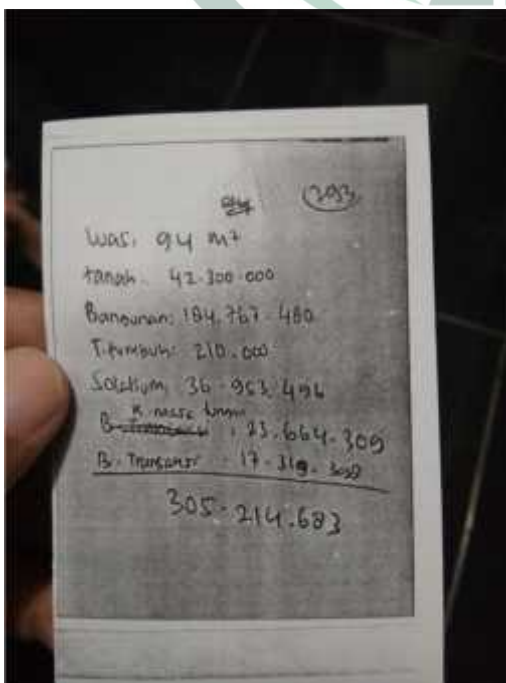 393
Luas, 94 m²
tanah : 42.300.000
Bangunan: 184.767.480
T.tumbuh: 210.000
Solatium, 36.953.496
: 23.664.309
B. Transaksi : 17.319.398
305.214.683